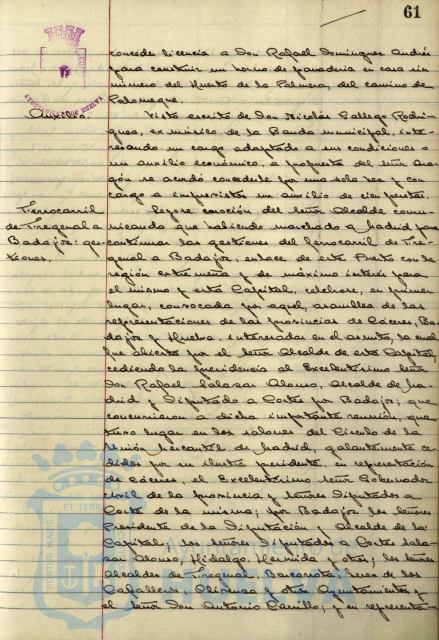 61
conceder licencia a Don Rafael Dominguez Andrés
para construir un horno de panaderia en casa sin
número del Huerto de la Palmera, del camino de
Palomeque.
AYUNTAMIENTO DE HUELVA
Auxilio.
Visto escrito de Don Nicolás Gallego Rodri-
guez, ex músico de la Banda municipal, inte-
resando un cargo adaptado a sus condiciones o
un auxilio económico, a propuesta del señor Ara-
gón se acordó concederle por una sola vez y con
cargo a imprevistos un auxilio de cien pesetas.
Ferrocarril
de Fregenal a
Badajoz: ges-
tiones.
Leyose moción del señor Alcalde comu-
nicando que habiendo marchado a Madrid para
continuar las gestiones del ferrocarril de Fre-
genal a Badajoz, enlace de este Puerto con la
región extremeña y de máximo interés para
el mismo y esta Capital, celebrose, en primer
lugar, convocada por aquel, asamblea de las
representaciones de las provincias de Cáceres, Ba-
dajoz y Huelva, interesadas en el asunto, la cual
fue abierta por el señor Alcalde de esta Capital,
cediendo la presidencia al Excelentísimo señor
Don Rafael Salazar Alonso, Alcalde de Ma-
drid y Diputado a Cortes por Badajoz; que
concurrieron a dicha importante reunión, que
tuvo lugar en los salones del Circulo de la
Unión Mercantil de Madrid, galantemente ce-
didos por su ilustre presidente, en representación
de Cáceres, el Excelentísimo señor Gobernador
civil de la provincia y señores Diputados a
Cortes de la misma; por Badajoz los señores
Presidente de la Diputación y Alcalde de la
Capital, los señores Diputados a Cortes Sala-
zar Alonso, Hidalgo, Hermida y otros; los señores
Alcaldes de Fregenal, Barcarrota, Jerez de los
Caballeros, Olivenza y otros Ayuntamientos y
el señor Don Antonio Carrillo; y en representa-